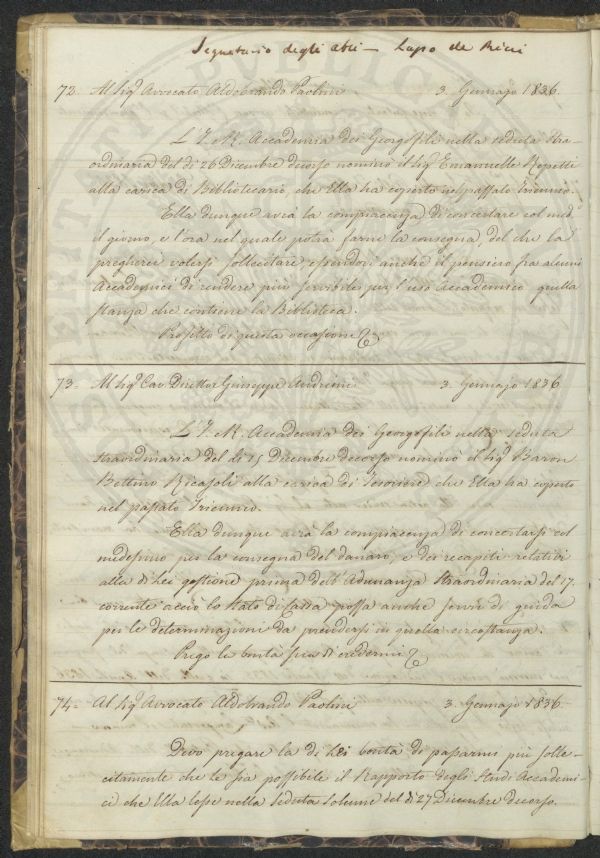 Segretario degli atti - Lapo de Ricci
72. Al Sigr. Avvocato Aldobrando Paolini 3. Gennajo 1836.
L'I. e R. Accademia dei Georgofili nella seduta stra-
ordinaria del dì 26 Dicembre decorso nominò il Sigr. Emanuelle Repetti
alla carica di Bibliotecario, che Ella ha coperto nel passato triennio.
Ella dunque avrà la compiacenza di concertare col med.
il giorno, e l'ora nel quale potrà farne la consegna, del che la
pregherei volersi sollecitare essendovi anche il pensiero fra alcuni
Accademici di rendere più servibile per l'uso Accademico quella
stanza che contiene la Biblioteca.
Profitto di questa occasione &
73. Al Sigr. Cav. Direttor Giuseppe 3. Gennajo 1836
L'I. e R. Accademia dei Georgofili nella seduta
straordinaria del dì 15 Decembre decorso nominò il Sigr. Baron
Bettino Ricasoli alla carica di Tesoriere che Ella ha coperto
nel passato Triennio.
Ella dunque avrà la compiacenza di concertarsi col
medesimo per la consegna del danaro, e dei recapiti relativi
alla di Lei gestione prima dell'Adunanza straordinaria del 17.
corrente acciò lo stato di Cassa possa anche servir di guida
per le determinazioni da prendersi in quella circostanza.
Prego la bontà sua di credermi &
74. Al Sigr. Avvocato Aldobrando Paolini 3. Gennajo 1836.
Devo pregare la di Lei bontà di passarmi più solle-
citamente che le sia possibile il Rapporto degli Studi Accademi-
ci che Ella lesse nella Seduta Solenne del dì 27 Dicembre decorso.